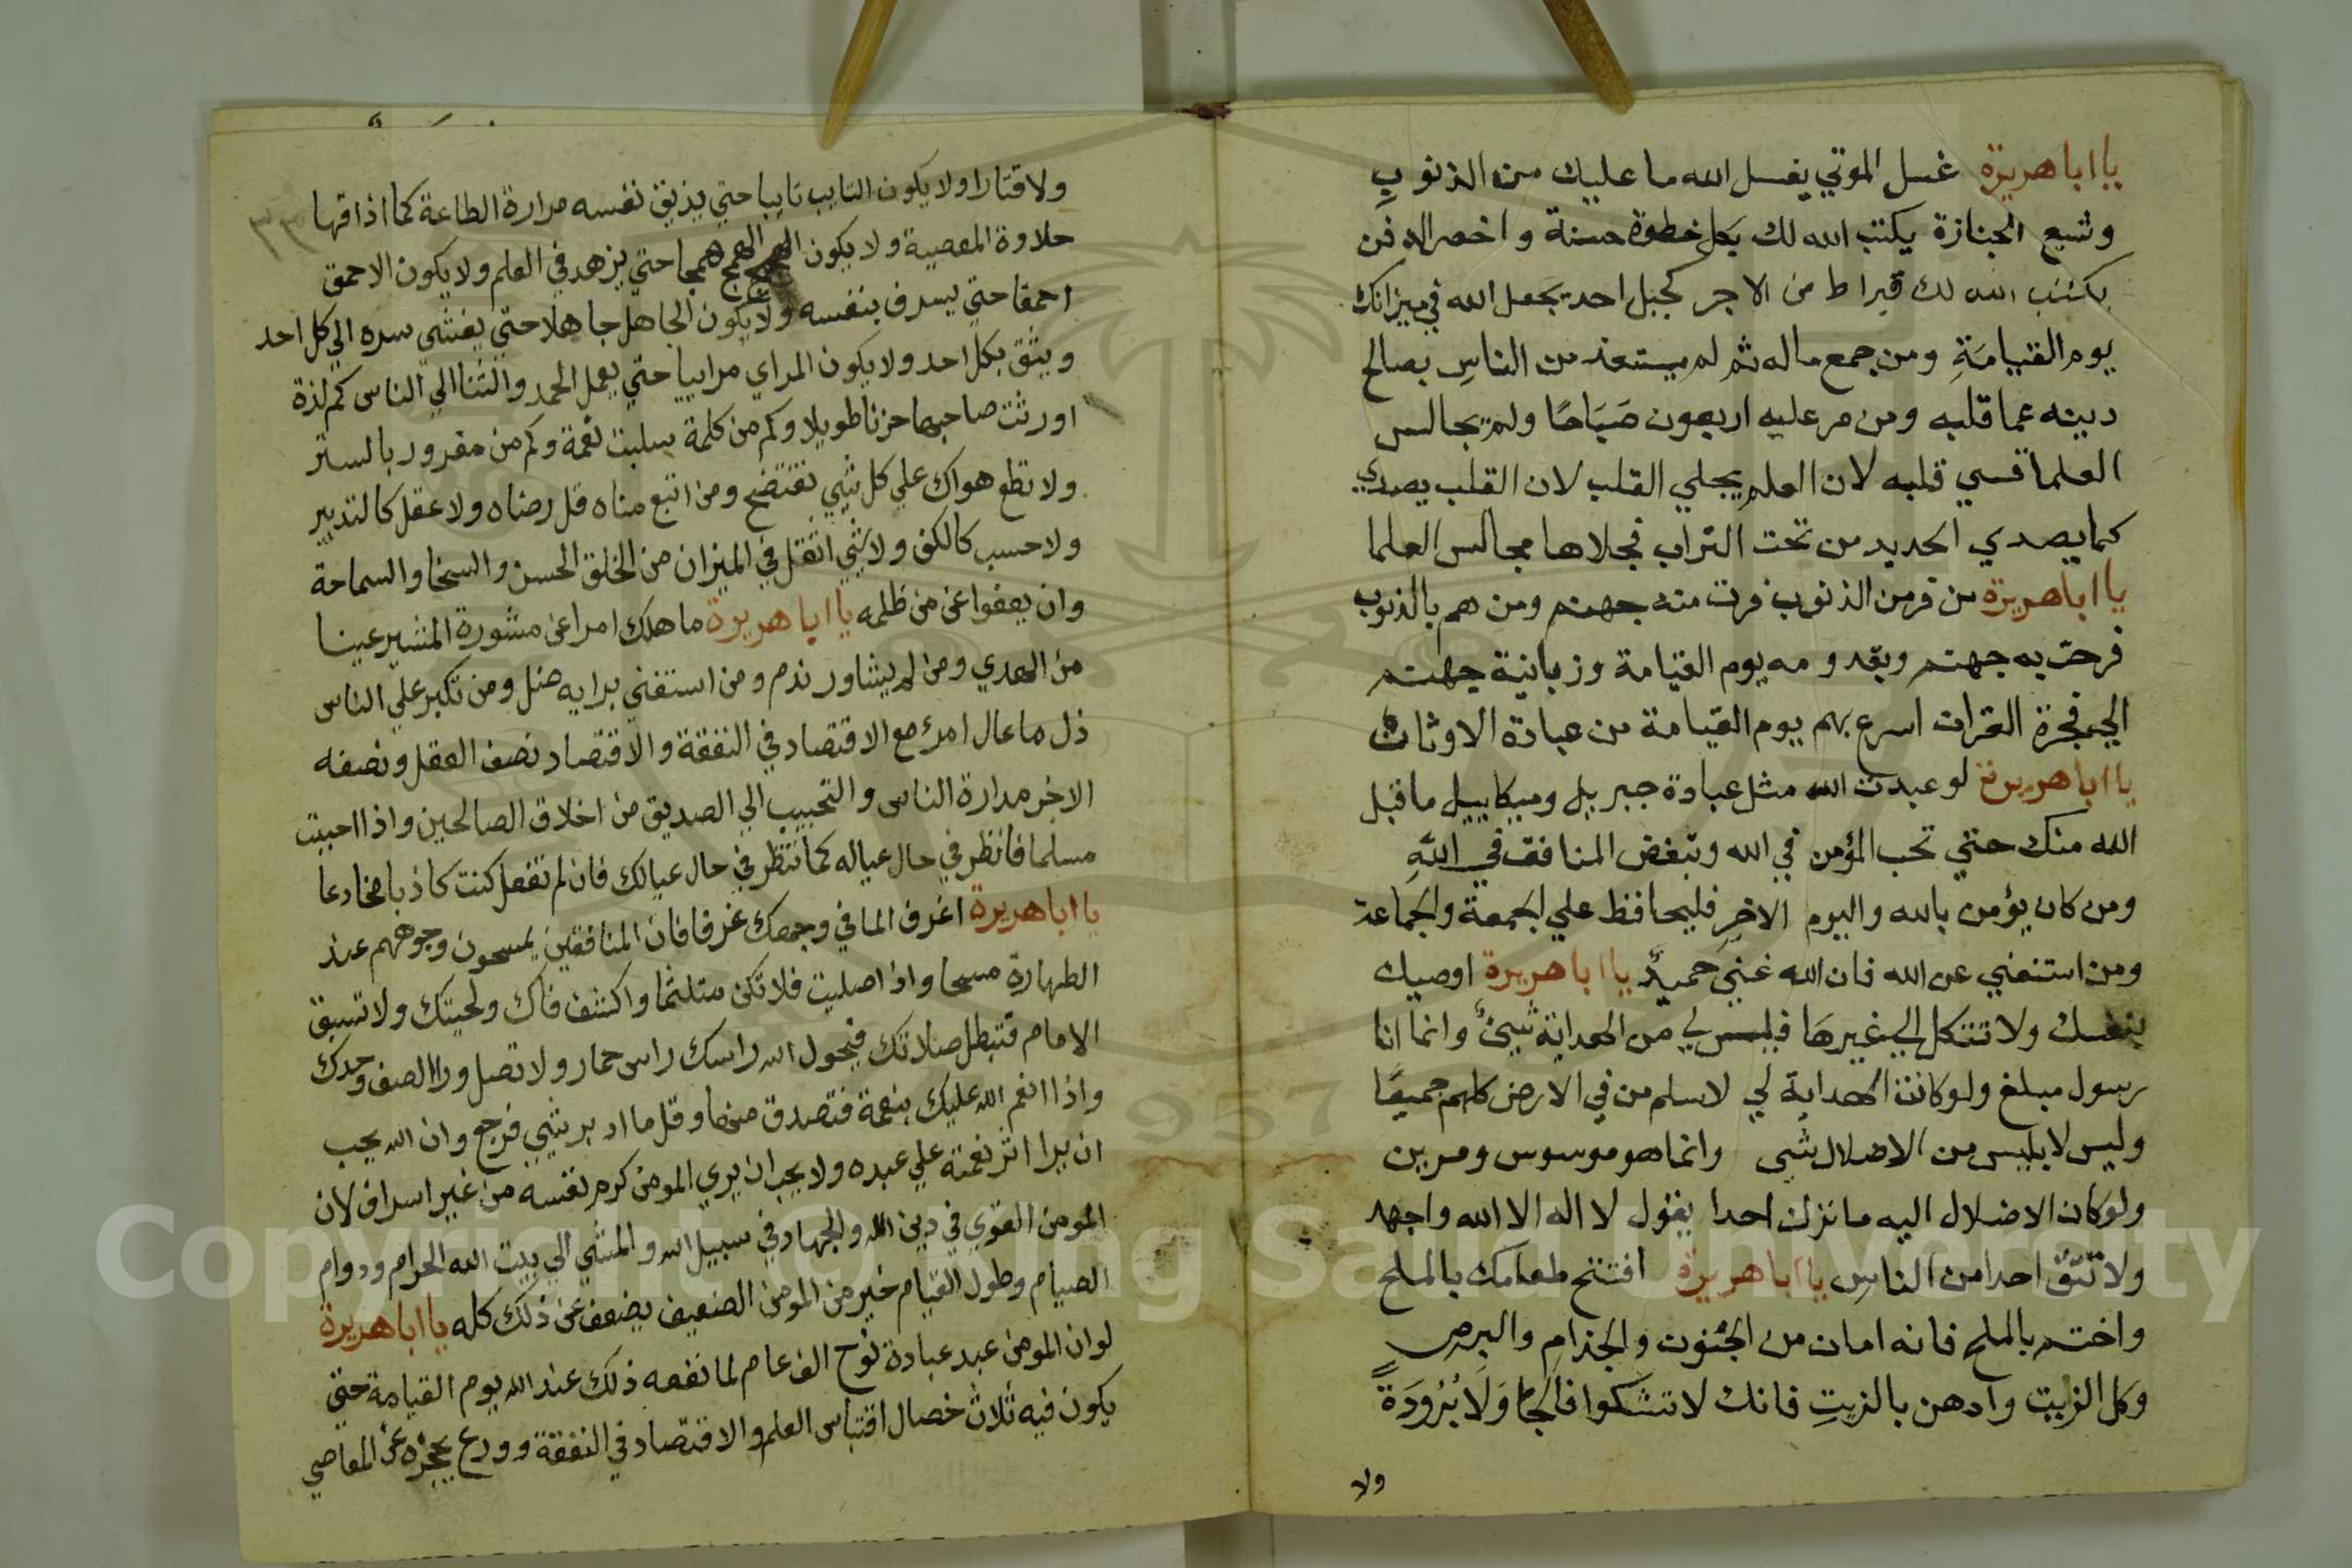 يا اباهريرة غسل الموتي يغسل الله ما عليك من الذنوب
وتتبع الجنازة يكتب الله لك بكل خطوة حسنة واحصر الدفن
يكتب الله لك قيراط من الاجر كجبل احد يجعل الله في ميزانك
يوم القيامة ومن جمع ماله ثم لم يستعذ من الناس بصالح
دينه عما قلبه ومن مر عليه اربعون صباحا ولم يجالس
العلما قسي قلبه لان العلم يجلي القلب لان القلب يصدي
كما يصدي الحديد من تحت التراب فجلاها مجالس العلما
يا اباهريرة من فر من الذنوب فرت منه جهنم ومن هم بالذنوب
فرحت به جهنم وبقدومه يوم القيامة وزبانية جهنم
الي فجرة القران اسرع بهم يوم القيامة من عبادة الاوثان
يا اباهريرة لو عبدت الله مثل عبادة جبريل وميكاييل ما قبل
الله منك حتي تحب المؤمن في الله وتبغض المنافق في الله
ومن كان يؤمن بالله واليوم الاخر فليحافظ علي الجمعة والجماعة
ومن استغني عن الله فان الله غني حميد يا اباهريرة اوصيك
بنفسك ولا تتكل الي غيرها فليس لي من الهداية شيئ وانما انا
رسول مبلغ ولو كانت الهداية لي لاسلم من في الارض كلهم جميعا
وليس لابليس من الاضلال شي وانما هو موسوس ومزين
ولو كان الاضلال اليه ما ترك احدا يقول لا اله الا الله واجهد
ولا تثق احدا من الناس يا اباهريرة افتتح طعامك بالملح
واختم بالملح فانه امان من الجنون والجذام والبرص
وكل الزيت وادهن بالزيت فانك لا تشكوا ولا برودة
ولا
ولا قتارا ولا يكون التايب تايبا حتي يذيق نفسه مرارة الطاعة كما اذاقها
٣٣
حلاوة المعصية ولا يكون الهمج همجا حتي يزهد في العلم ولا يكون الاحمق
احمقا حتي يسرف بنفسه ولا يكون الجاهل جاهلا حتي يفشي سره الي كل احد
ويثق بكل احد ولا يكون المراي مراييا حتي يعمل الحمد والثنا الي الناس كم لذة
اورثت صاحبها حزنا طويلا وكم من كلمة سلبت نعمة وكم من مغرور بالستر
ولا تطع هواك علي كل شي تفتضح ومن اتبع مناه قل رضاه ولا عقل كالتدبير
ولا حسب كالكف ولا شي اثقل في الميزان من الخلق الحسن والسخا والسماحة
وان يعفوا عن من ظلمه يا اباهريرة ما هلك امرا عن مشورة المشير عينا
من الهدي ومن لم يشاور ندم ومن استغني برايه ضل ومن تكبر علي الناس
ذل ما عال امرء مع الاقتصاد في النفقة والاقتصاد نصف العقل ونصفه
الاخر مدارة الناس والتحبيب الي الصديق من اخلاق الصالحين واذا احببت
مسلما فانظر في حال عياله كما تنظر في حال عيالك فان لم تفعل كنت كاذبا مخادعا
يا اباهريرة اغرف الما في وجهك غرفا فان المنافقين يمسحون وجوههم عند
الطهارة مسحا واذا صليت فلا تكن متلثما واكشف فاك ولحيتك ولا تسبق
الامام فتبطل صلاتك فيحول الله راسك راس حمار ولا تصل ورا الصف وحدك
واذا انعم الله عليك بنعمة فتصدق منها وقل ما ادبر شي فرجع وان الله يحب
ان يرا اثر نعمته علي عبده ولا يحب ان يري المومن كرم نفسه من غير اسراف لان
المومن القوي في دين الله والجهاد في سبيل الله والمشي الي بيت الله الحرام ودوام
الصيام وطول القيام خير من المومن الضعيف يضعف عن ذلك كله يا اباهريرة
لو ان المومن عبد عبادة نوح الف عام لما نفعه ذلك عند الله يوم القيامة حتي
يكون فيه ثلاث خصال اقتباس العلم والاقتصاد في النفقة وورع يحجزه عن المعاصي
Copyright © King Saud University
1957